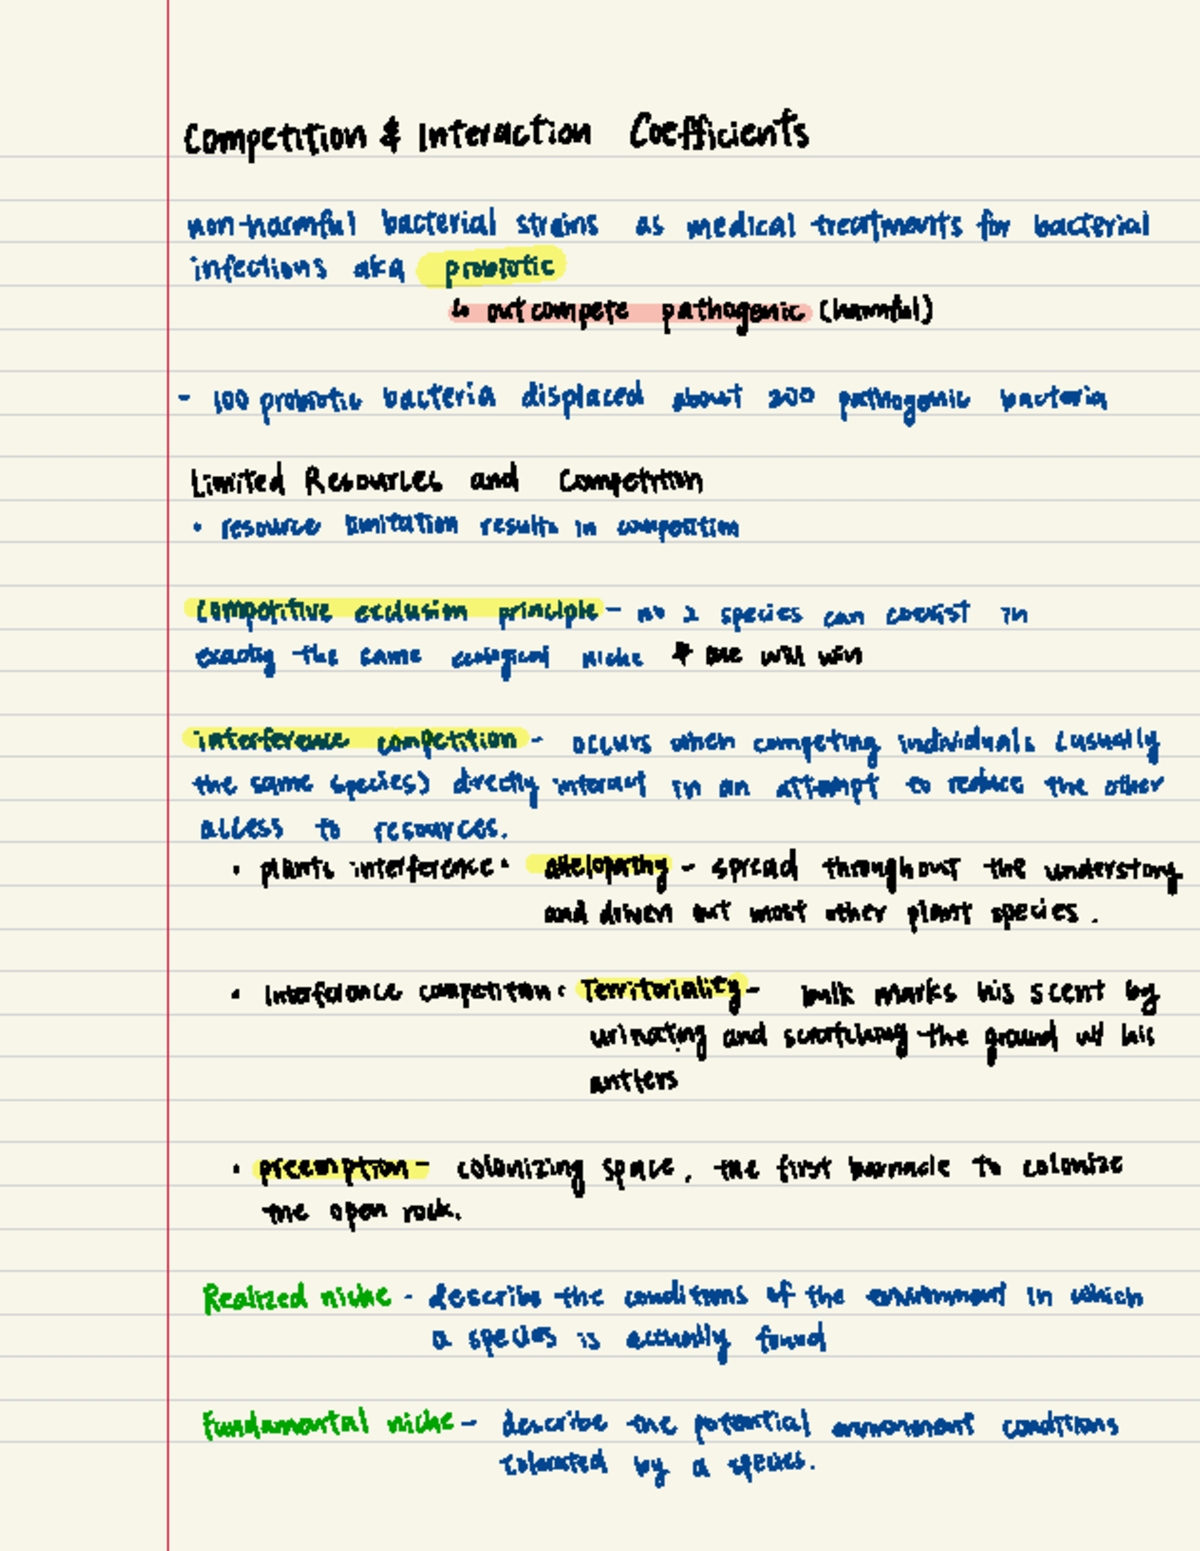 Competition & Interaction Coefficients
non-harmful bacterial strains as medical treatments for bacterial
infections aka probiotic
↳ outcompete pathogenic (harmful)
- 100 probiotic bacteria displaced about 200 pathogenic bacteria
Limited Resources and Competition
• resource limitation results in competition
competitive exclusion principle - no 2 species can coexist in
exactly the same ecological niche * one will win
interference competition - occurs when competing individuals (usually
the same species) directly interact in an attempt to reduce the other
access to resources.
• plants interference: allelopathy - spread throughout the understory
and driven out most other plant species.
• Interference competition: Territoriality - bulk marks his scent by
urinating and scratching the ground w/ his
antlers
• preemption - colonizing space, the first barnacle to colonize
the open rock.
Realized niche - describe the conditions of the environment in which
a species is actually found
Fundamental niche - describe the potential environment conditions
tolerated by a species.